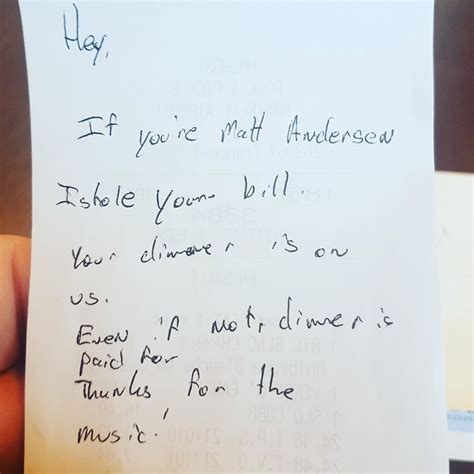 Hey,
If you're Matt Andersen
I stole your bill.
Your dinner is on
us.
Even if not, dinner is
paid for
Thanks for the
music!